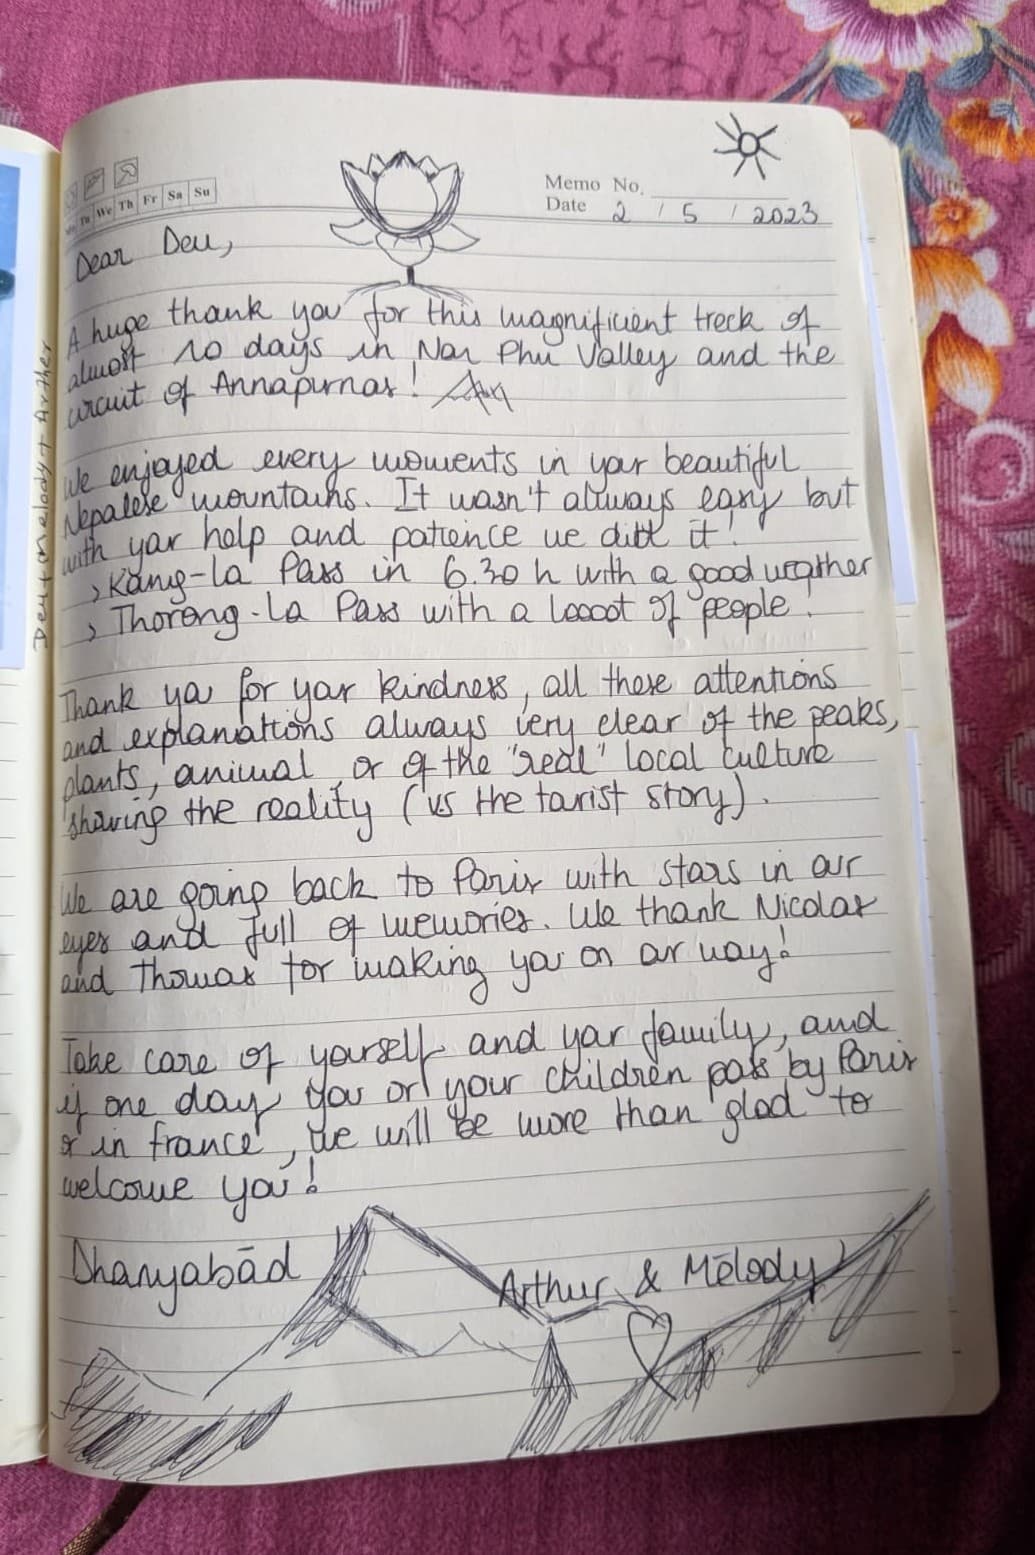 Tu We Th Fr Sa Su
Memo No.
Date 2 / 5 / 2023
Dear Deu,
A huge thank you for this magnificient treck of
almost 10 days in Nar Phu Valley and the
circuit of Annapurnas!
We enjoyed every moments in your beautiful
Nepalese mountains. It wasn't allways easy but
with your help and patience we did it!
> Kang-la Pass in 6.30 h with a good weather
> Thorong-La Pass with a loooot of people!
Thank you for your kindness, all these attentions
and explanations always very clear of the peaks,
plants, animal or of the "real" local culture
showing the reality (vs the tourist story).
We are going back to Paris with stars in our
eyes and full of memories. We thank Nicolas
and Thomas for making you on our way!
Take care of yourself and your family, and
if one day you or your children pass by Paris
or in france, we will be more than glad to
welcome you!
Dhanyabād
Arthur & Mélody